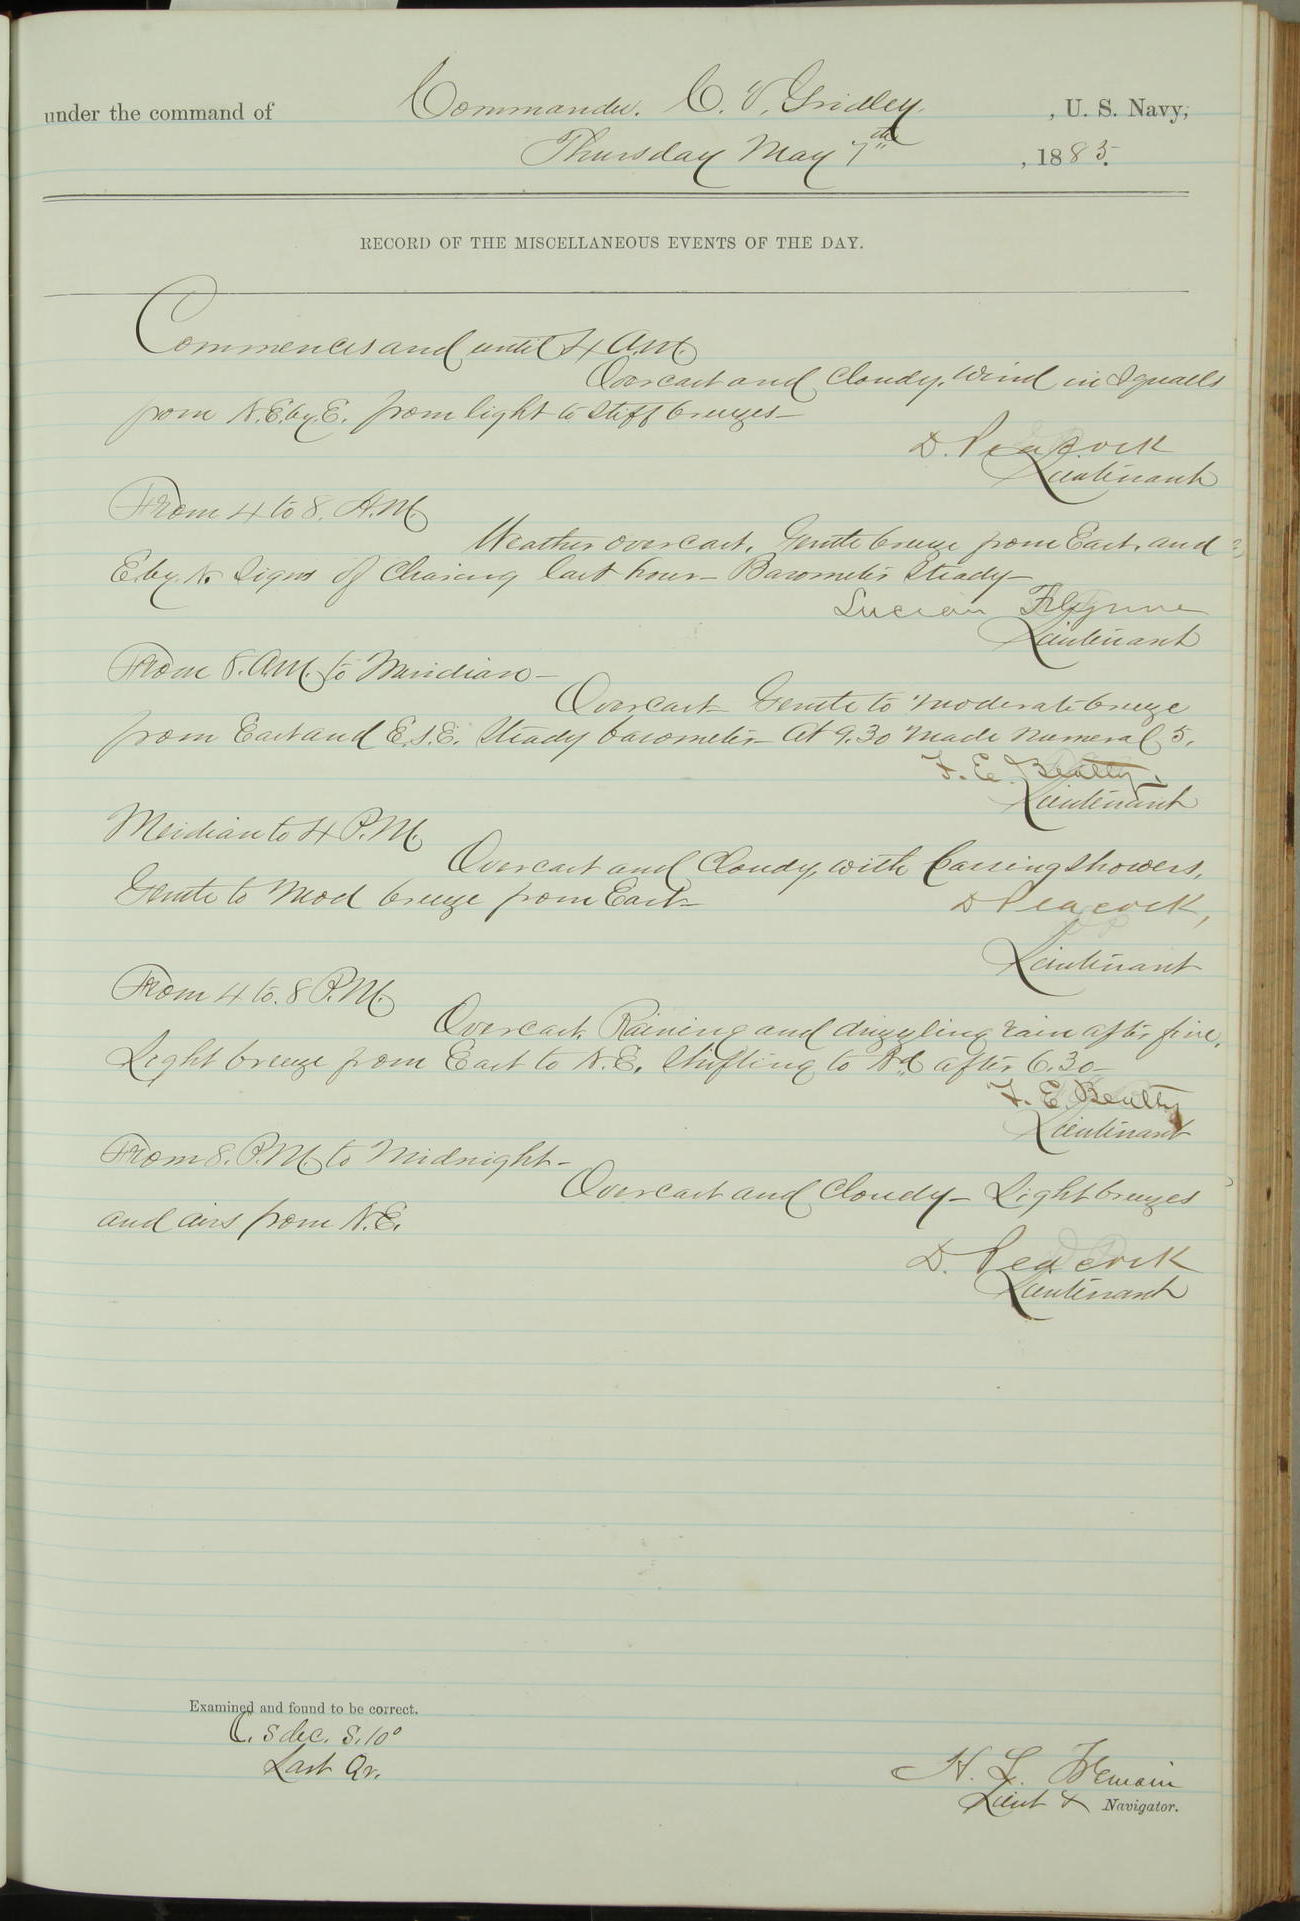 under the command of Commander. C. V. Gridley. , U. S. Navy,
Thursday May 7th , 1885.
RECORD OF THE MISCELLANEOUS EVENTS OF THE DAY.
Commences and until 4 A.M.
Overcast and cloudy, wind in squalls
from N.E. by. E. from light to stiff breezes—
D. Peacock
Lieutenant
From 4 to 8. A.M.
Weather overcast. Gentle breeze from East, and
E. by. N. Signs of Clearing last hour— Barometer Steady—
Lucian Flynne
Lieutenant
From 8. A.M. to Meridian—
Overcast— Gentle to moderate breeze
from East and E.S.E. Steady barometer— At 9.30 made numeral 5.
F. E. Beatty.
Lieutenant
Meridian to 4 P.M.
Overcast and Cloudy, with passing showers,
Gentle to Mod breeze from East—
D Peacock,
Lieutenant
From 4 to. 8 P.M.
Overcast. Raining and drizzling rain after five,
Light breeze from East to N.E. Shifting to Nd. after 6.30—
F. E. Beatty
Lieutenant
From 8. P.M. to Midnight—
Overcast and Cloudy— Light breezes
and airs from N.E.
D. Peacock
Lieutenant
Examined and found to be correct.
dec. S. 10°
Last Qr.
H. L. Tremain
Lieut & Navigator.